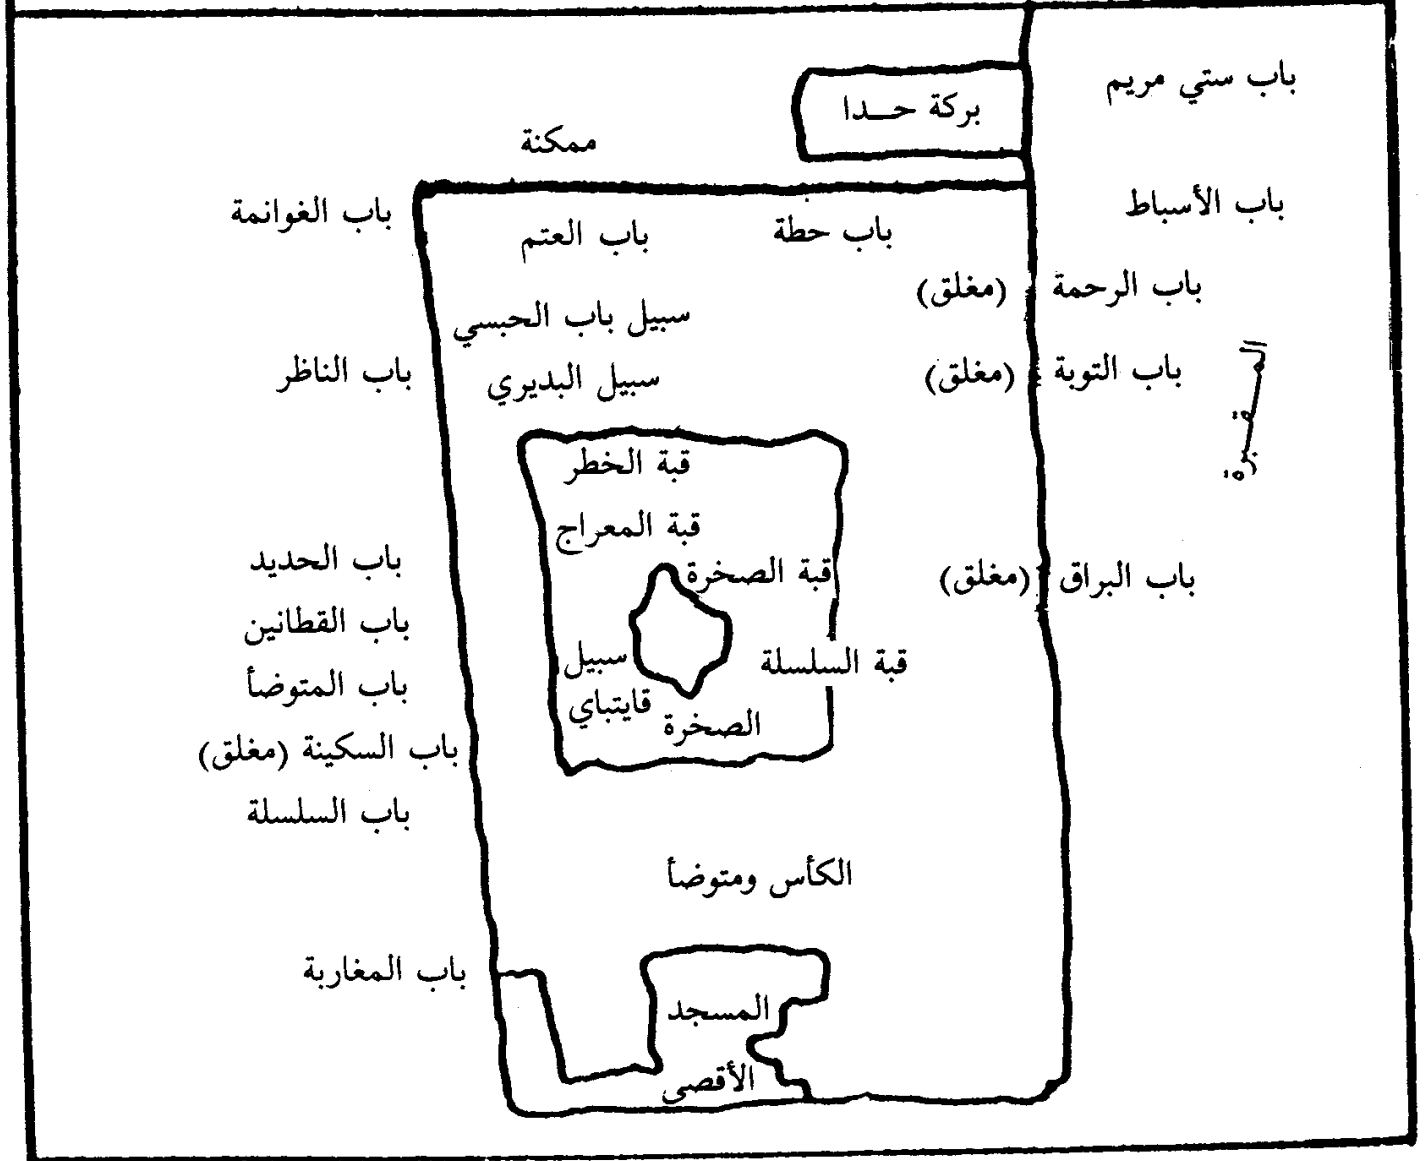 باب ستي مريم
بركة حدا
ممكنة
باب الأسباط
باب الغوانمة
باب حطة
باب العتم
باب الرحمة (مغلق)
سبيل باب الحبسي
باب التوبة (مغلق)
المقبرة
سبيل البديري
باب الناظر
قبة الخطر
قبة المعراج
باب الحديد
قبة الصخرة
باب البراق (مغلق)
باب القطانين
سبيل
قايتباي
قبة السلسلة
باب المتوضأ
الصخرة
باب السكينة (مغلق)
باب السلسلة
الكأس ومتوضأ
باب المغاربة
المسجد
الأقصى